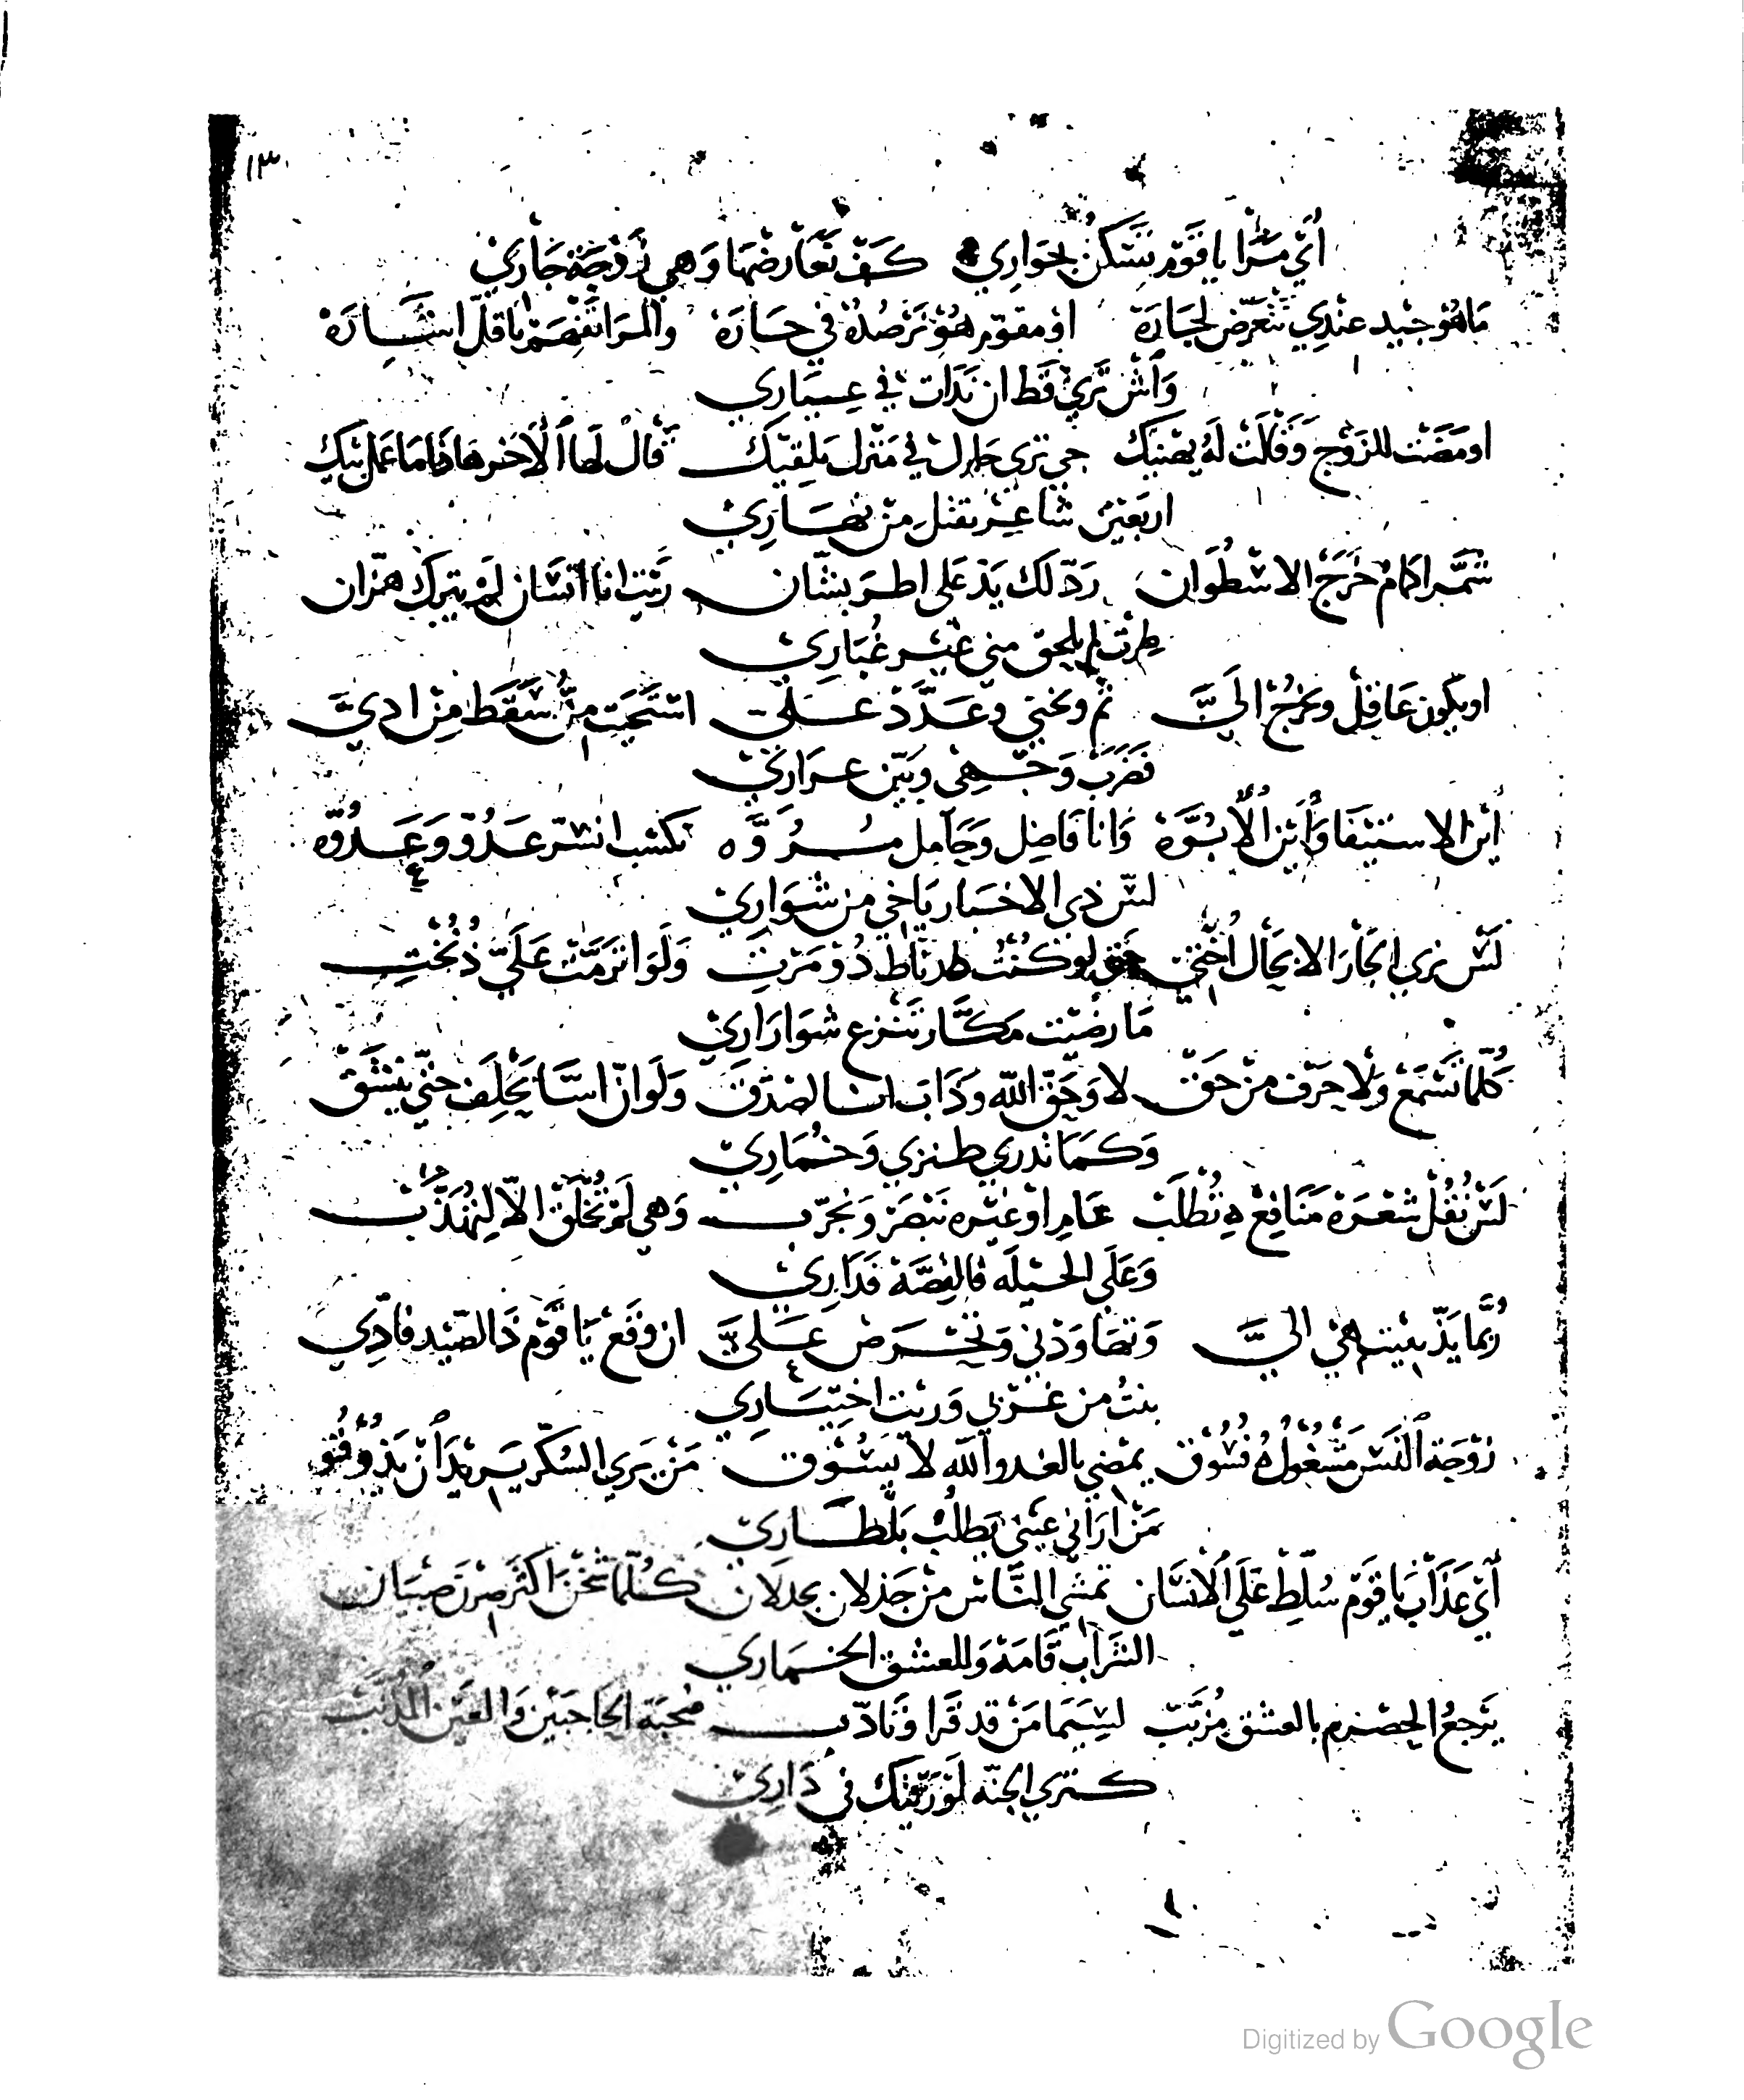 ١٣
أي مرا يا قوم تسكن بجواري كف نعارضها وهي زوجة جاري
ما هو جيد عندي نتعرض لجارة او مقوم هو نرصده في حارة والمرا تفهم باقل اشارة
واش تري قط ان بدات في عياري
او مضت للزوج وقالت له يصنيك جي تري حارك في منزل يلقيك قال لها الاخر هاذا ما عمل بيك
اربعين شاعر نقتل من نهاري
شمر اكمام خرج الاسطوان ردّ لك يد على اطربشان ريت انا انسان لم يترك همزان
طرت لم يلحق مني غير غباري
او يكون عاقل ونخرج اليّ ثم وبخني وعدّد عليّ استحيت من سقط من اديّ
فضرب وجهي وبين عراري
أين الاستيفا وأين الأبوّة وانا فاضل وجامل مروّه نكسب انشر عدو وعدوّه
لس ذي الاخبار ياخي من شواري
لس نري الجار الا بحال اختي لو كنت ولو انرمت عليّ ذخت
ما رضيت مكار تنزع شواراري
كلما نسمع ولا حرف من حق لا وحق الله وذاب انا لصدق ولو انّ انسا يحلف حتي ينشق
وكما ندري طنزي وخماري
لس نقل شعرة منافع ه نطلب عامر او غيره نبصر ونجرب وهي لم تخلق الّا لتهذب
وعلي الحيله فالقصة قداري
ربما يذ بيت هي اليّ وتهاودني ونحرض عليّ ان وقع يا قوم ذا الصيد فادي
بنت من غربي وريت اختياري
زوجة النس مشغوله فسوق يمضي بالغدو الله لا يسوق من يري السكر يس يريد أن يذوقو
من اراني عيني يطلب بلطاري
أي عذاب يا قوم سلط علي الانسان تمشي الناس من جذلان بجدلان كلما نحن اكثر صرن صبيان
الشراب قامة وللعشق الخماري
يرجع الحصرم بالعشق مزبب ليسما من قد قرا وتادب صحبة الحاجبين والعين المذنب
كتري الجنه لو ريتك في داري
Digitized by Google